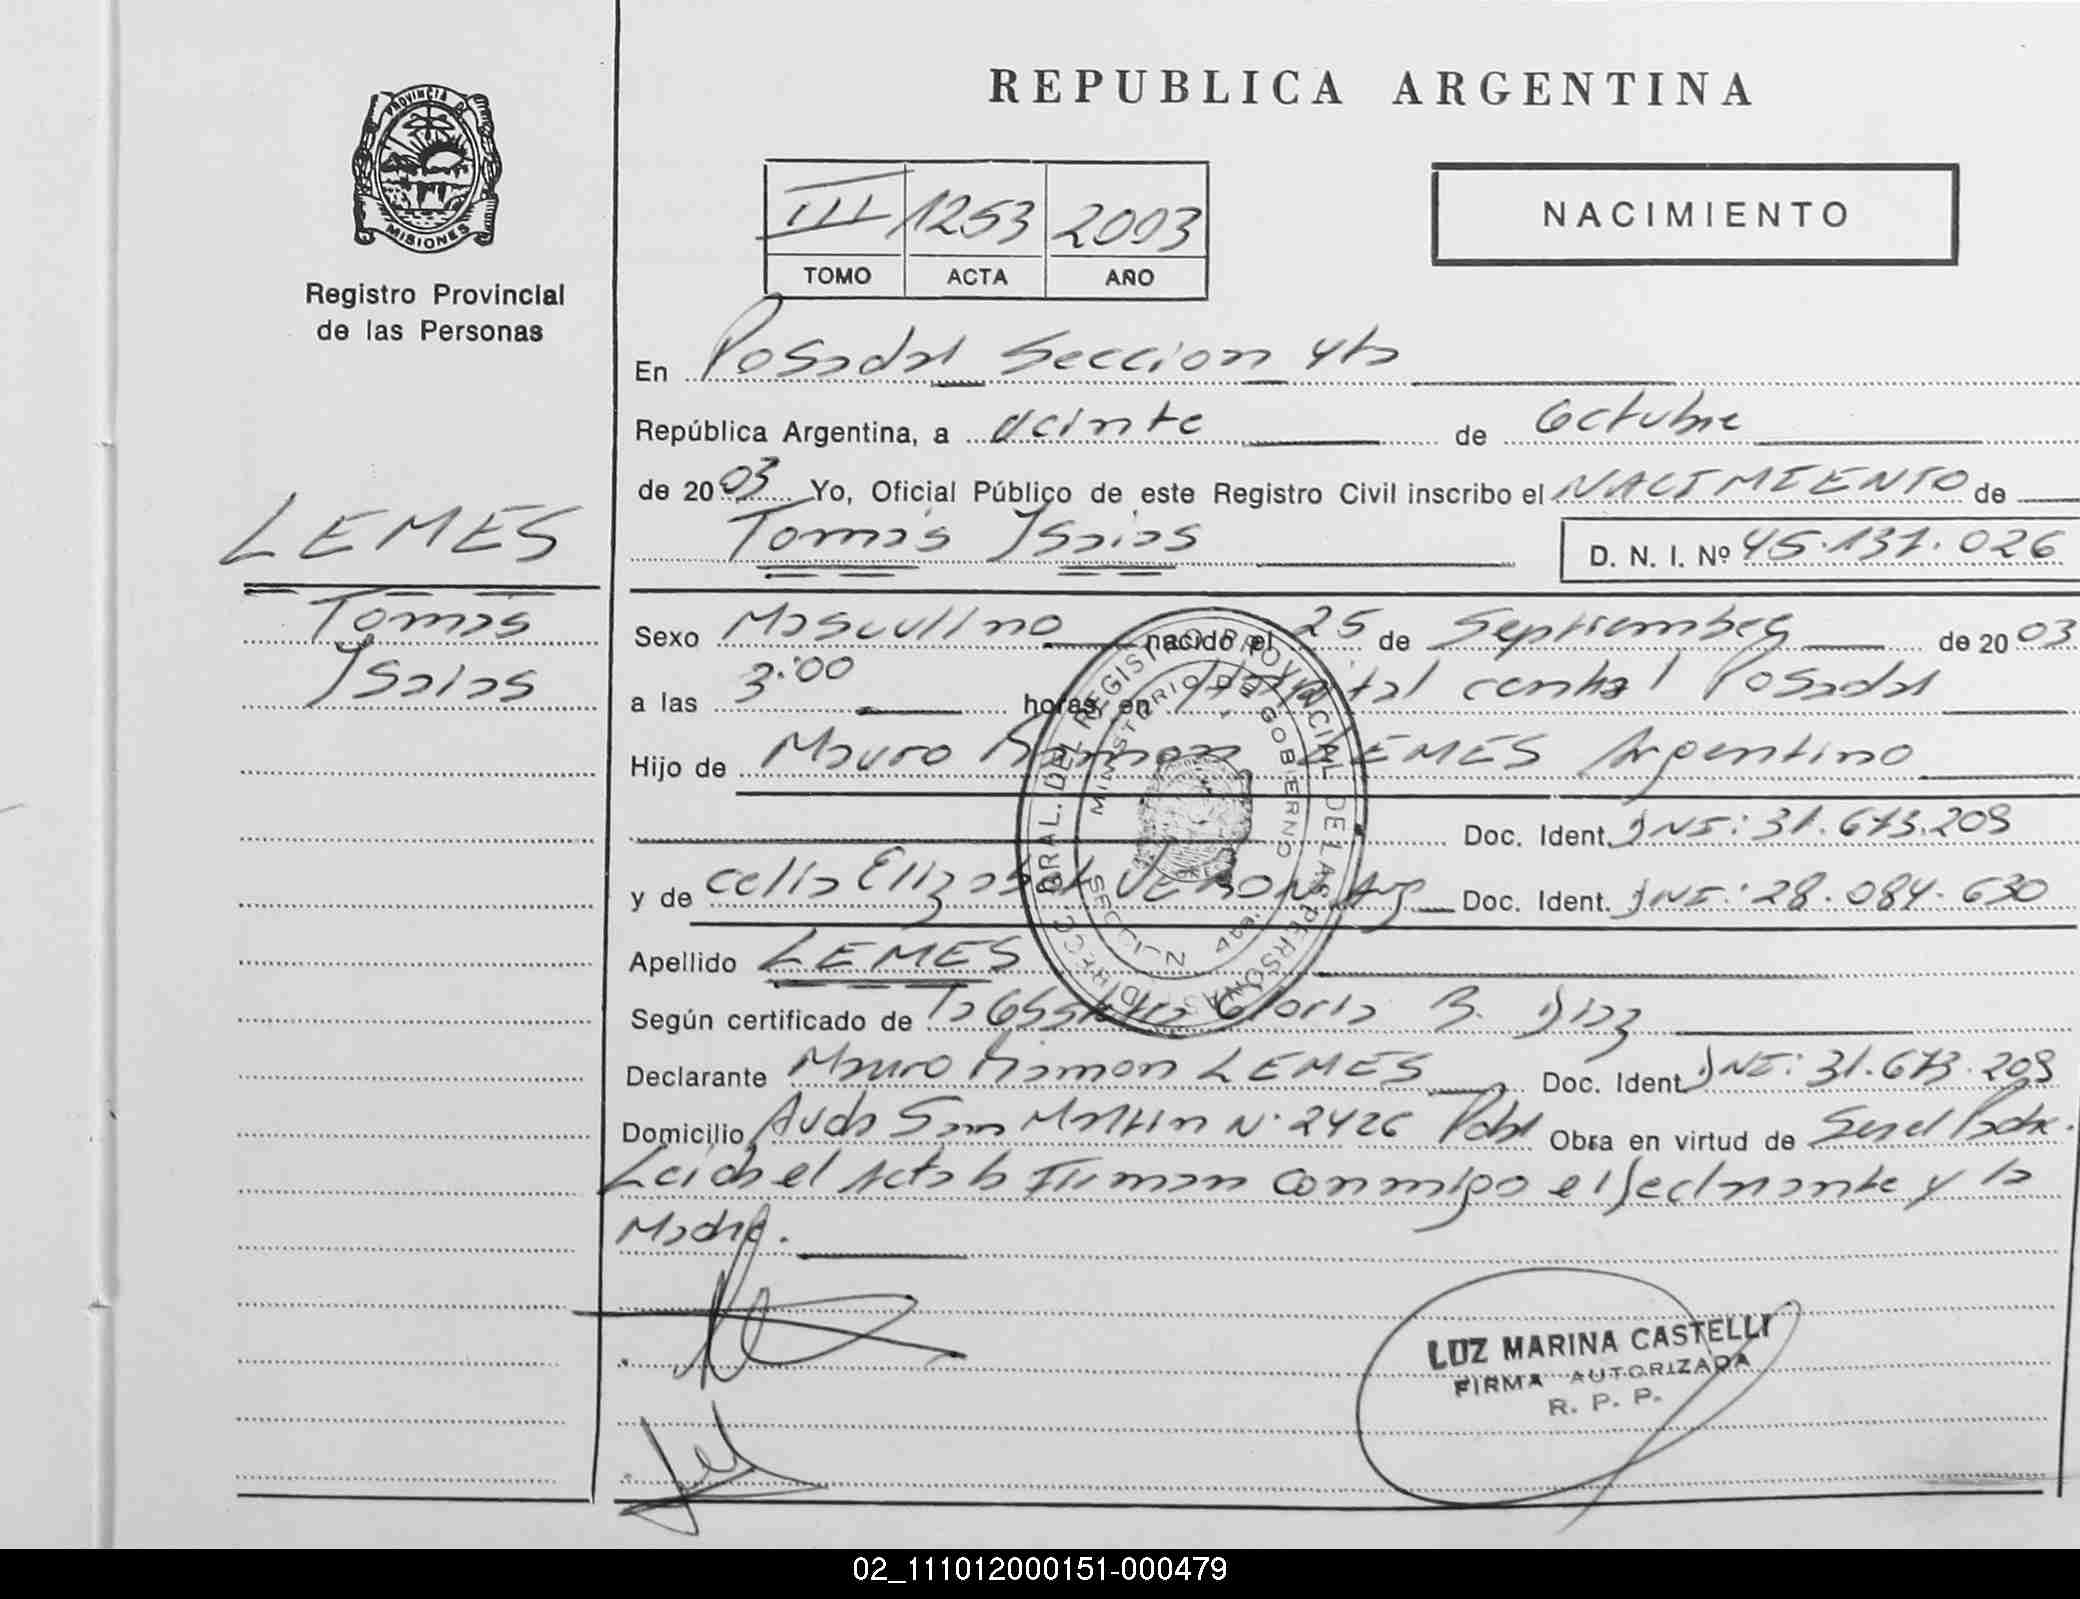 REPUBLICA ARGENTINA
PROVINCIA DE
MISIONES
Registro Provincial
de las Personas
III 1253 2003
TOMO ACTA AÑO
NACIMIENTO
En Posadas Seccion 4ta
República Argentina, a veinte de Octubre
de 2003 Yo, Oficial Público de este Registro Civil inscribo el NACIMIENTO de
LEMES
Tomás Isaias
D. N. I. Nº 45.131.026
Tomás
Isaias
Sexo Masculino nacido el 25 de Septiembre de 2003
a las 3:00 horas, en Hospital central Posadas
Hijo de Mauro Ramon LEMES Argentino
Doc. Ident. DNI: 31.673.209
y de Celia Elizabeth VERON Arg Doc. Ident. DNI: 28.084.630
Apellido LEMES
Según certificado de la Obstetra Gloria B. Diaz
Declarante Mauro Ramon LEMES Doc. Ident DNI: 31.673.209
Domicilio Avda San Martin N° 2426 Pdas Obra en virtud de Ser el Padre.
Leida el Acta la Firman conmigo el Declarante y la
Madre.
DIRECC. GRAL. DEL REGISTRO PROVINCIAL DE LAS PERSONAS
MINISTERIO DE GOBIERNO
SECCION 4ta.
LUZ MARINA CASTELLI
FIRMA AUTORIZADA
R. P. P.
02_111012000151-000479